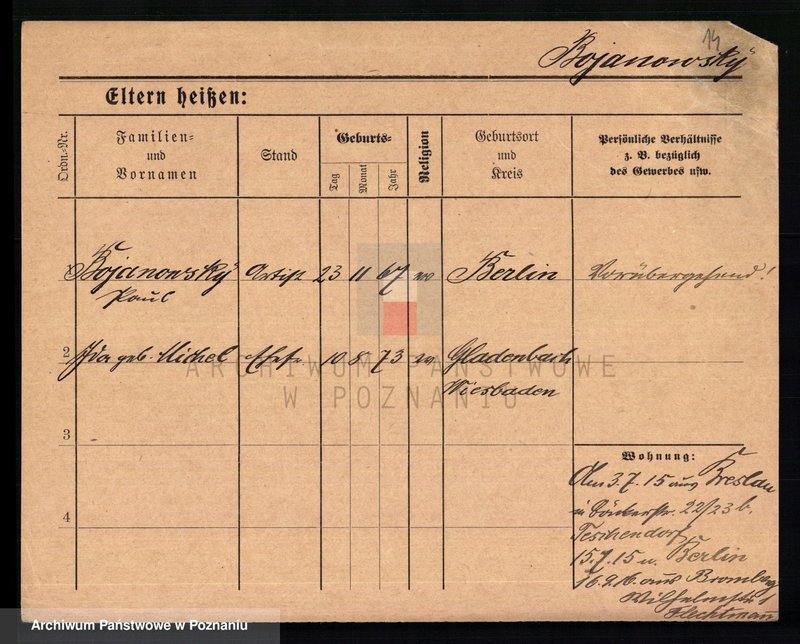 14
Bojanowsky
Eltern heißen:
Ordn.-Nr.
Familien-
und
Vornamen
Stand
Geburts-
Tag
Monat
Jahr
Religion
Geburtsort
und
Kreis
Persönliche Verhältnisse
z. B. bezüglich
des Gewerbes usw.
1 Bojanowsky Artist 23 11 67 ev Berlin Vorübergehend!
Paul
2 Ida geb. Michel Ehefr 10 8 73 ev Gladenbach
Wiesbaden
ARCHIWUM PAŃSTWOWE
W POZNANIU
3
4
Wohnung:
Am 3.7.15 aus Breslau
in Bäckerstr. 22/23 b.
Teschendorf
15.7.15 n. Berlin
16.9.16 aus Bromberg
Wilhelmstr 1
Flechtmann
Archiwum Państwowe w Poznaniu